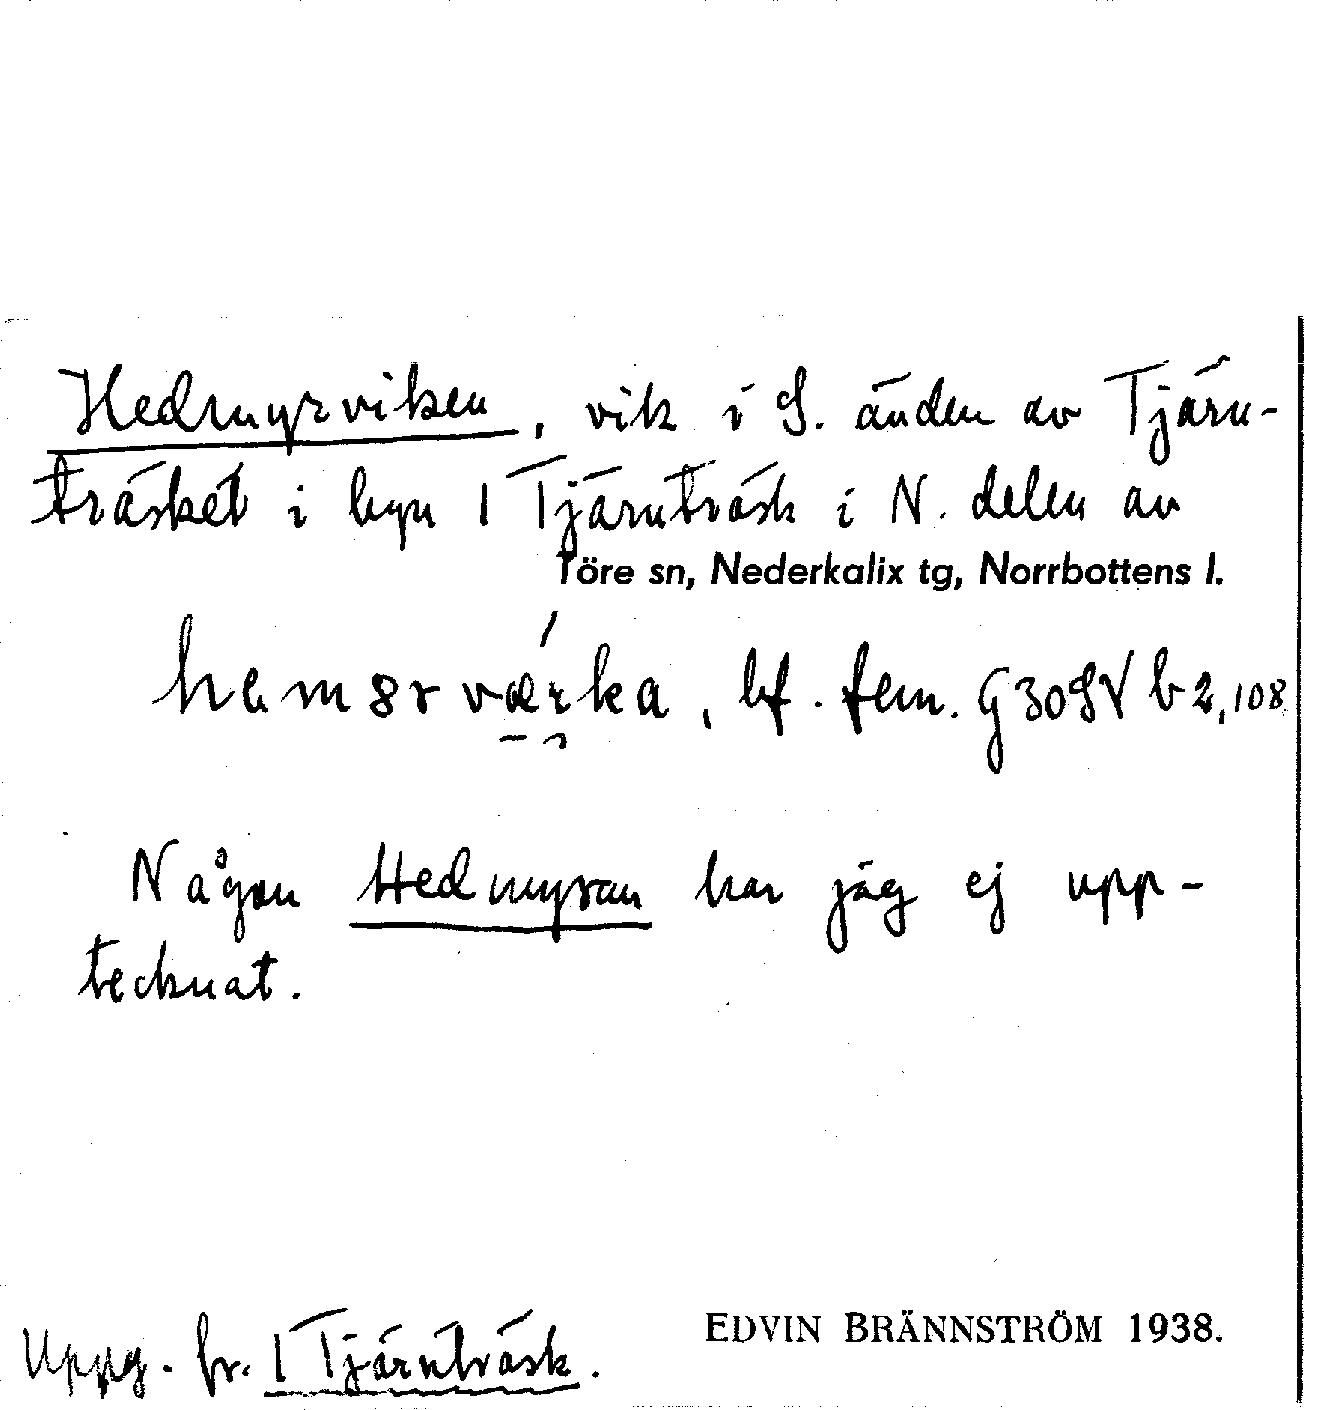 Hedmyrviken, vik i S. änden av Tjärn-
träsket i byn 1 Tjärnträsk i N. delen av
Töre sn, Nederkalix tg, Norrbottens l.
bf. fem. G 30 SV b 2, 108
Någon Hedmyran har jag ej upp-
tecknat.
Uppg. fr. 1 Tjärnträsk.
EDVIN BRÄNNSTRÖM 1938.